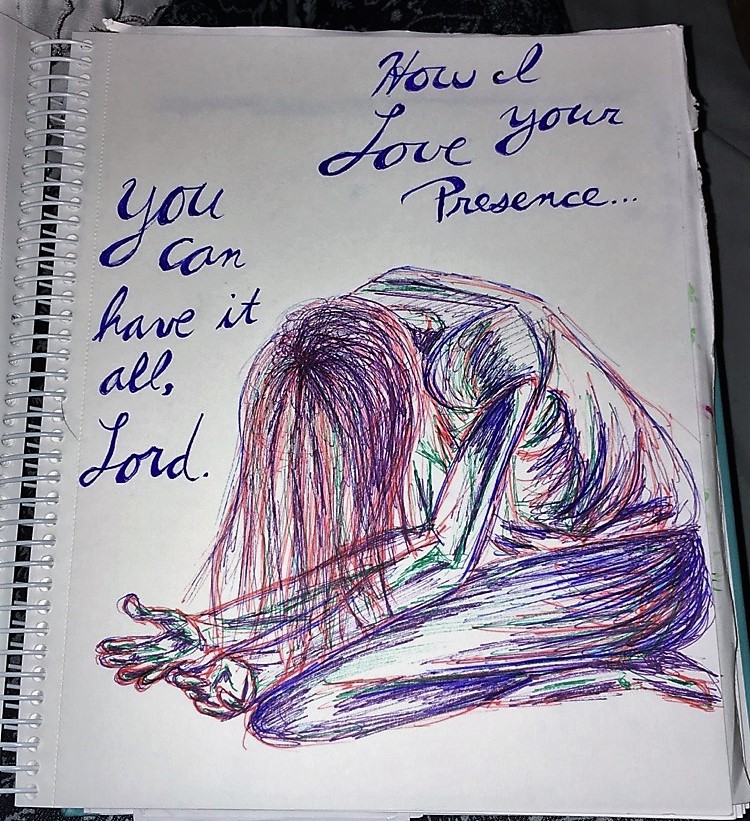 How I
Love your
Presence...
You
can
have it
all,
Lord.